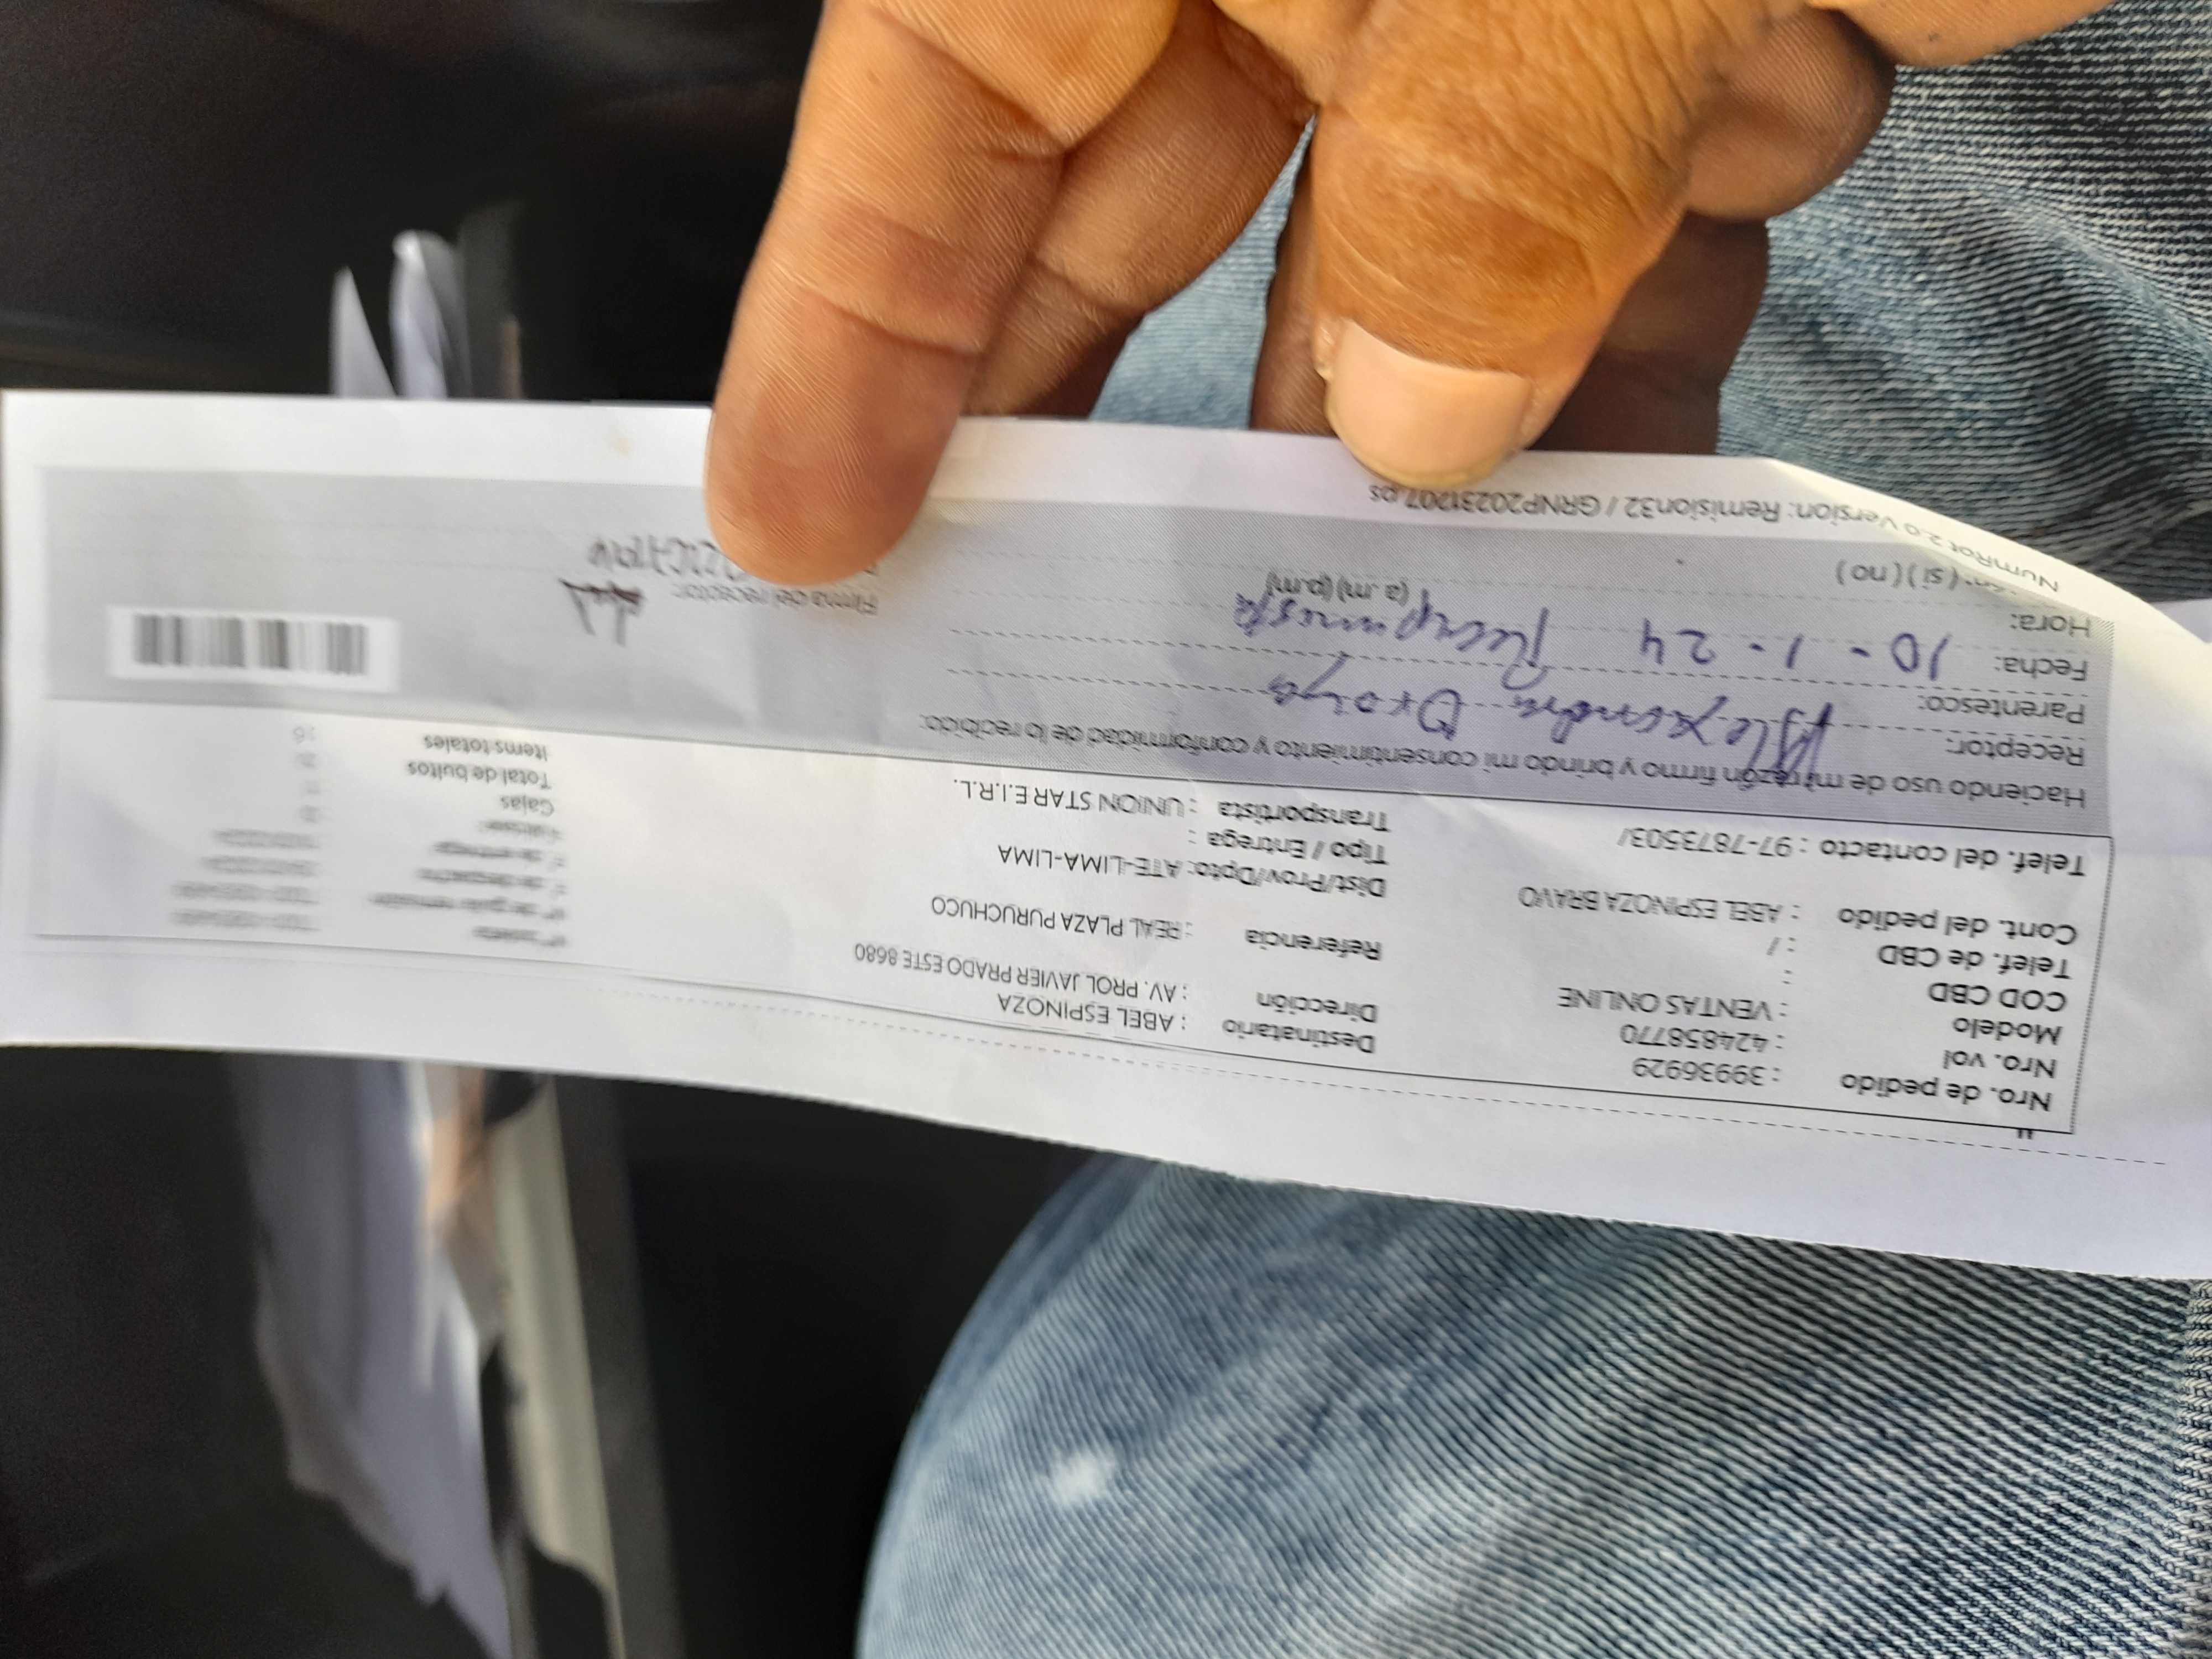 Nro. de pedido : 39936929
Nro. vol : 424858770
Modelo : VENTAS ONLINE
COD CBD :
Telef. de CBD : /
Cont. del pedido : ABEL ESPINOZA BRAVO
Telef. del contacto : 97-7873503/
Destinatario : ABEL ESPINOZA
Dirección : AV. PROL JAVIER PRADO ESTE 8680
Referencia : REAL PLAZA PURUCHUCO
Dist/Prov/Dpto: ATE-LIMA-LIMA
Tipo / Entrega :
Transportista : UNION STAR E.I.R.L.
N° de guía remisión
Cajas
Total de bultos
Items totales 16
Haciendo uso de mi razón firmo y brindo mi consentimiento y conformidad de lo recibido:
Receptor: Alexandra Oroya
Parentesco:
Fecha: 10 - 1 - 24
Hora: (a .m) (p.m)
( si ) ( no )
Firma del receptor:
NumRot 2.0 Version: Remision32 / GRNP20231207.ps